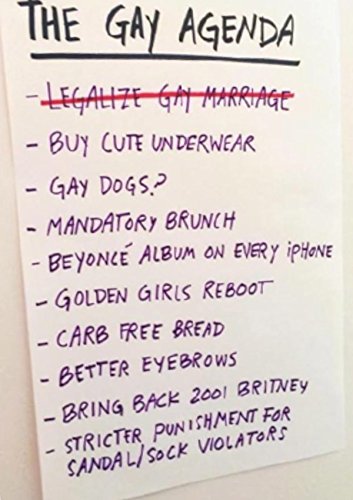 THE GAY AGENDA
- LEGALIZE GAY MARRIAGE
- BUY CUTE UNDERWEAR
- GAY DOGS?
- MANDATORY BRUNCH
- BEYONCÉ ALBUM ON EVERY iPHONE
- GOLDEN GIRLS REBOOT
- CARB FREE BREAD
- BETTER EYEBROWS
- BRING BACK 2001 BRITNEY
- STRICTER PUNISHMENT FOR
SANDAL/SOCK VIOLATORS